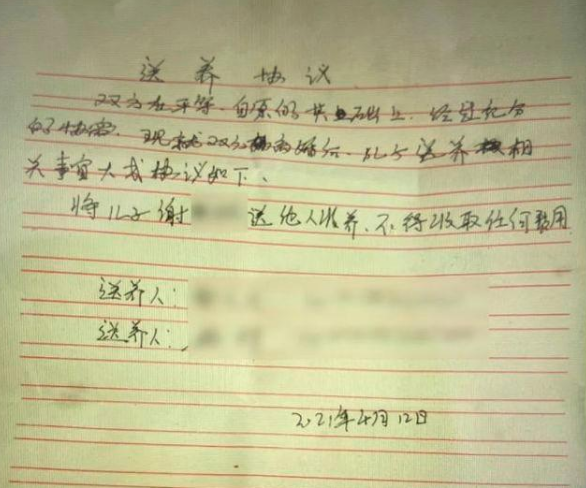 送养协议
双方在平等、自愿的基础上，经过充分
的协商，现就双方的婚后，儿子送养相
关事宜大成协议如下。
将儿子谢 送他人收养、不得收取任何费用
送养人：
送养人：
2021年4月12日